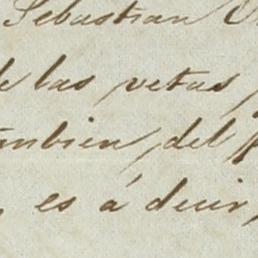 Sebastian
las vetas
tambien, del
es á decir,